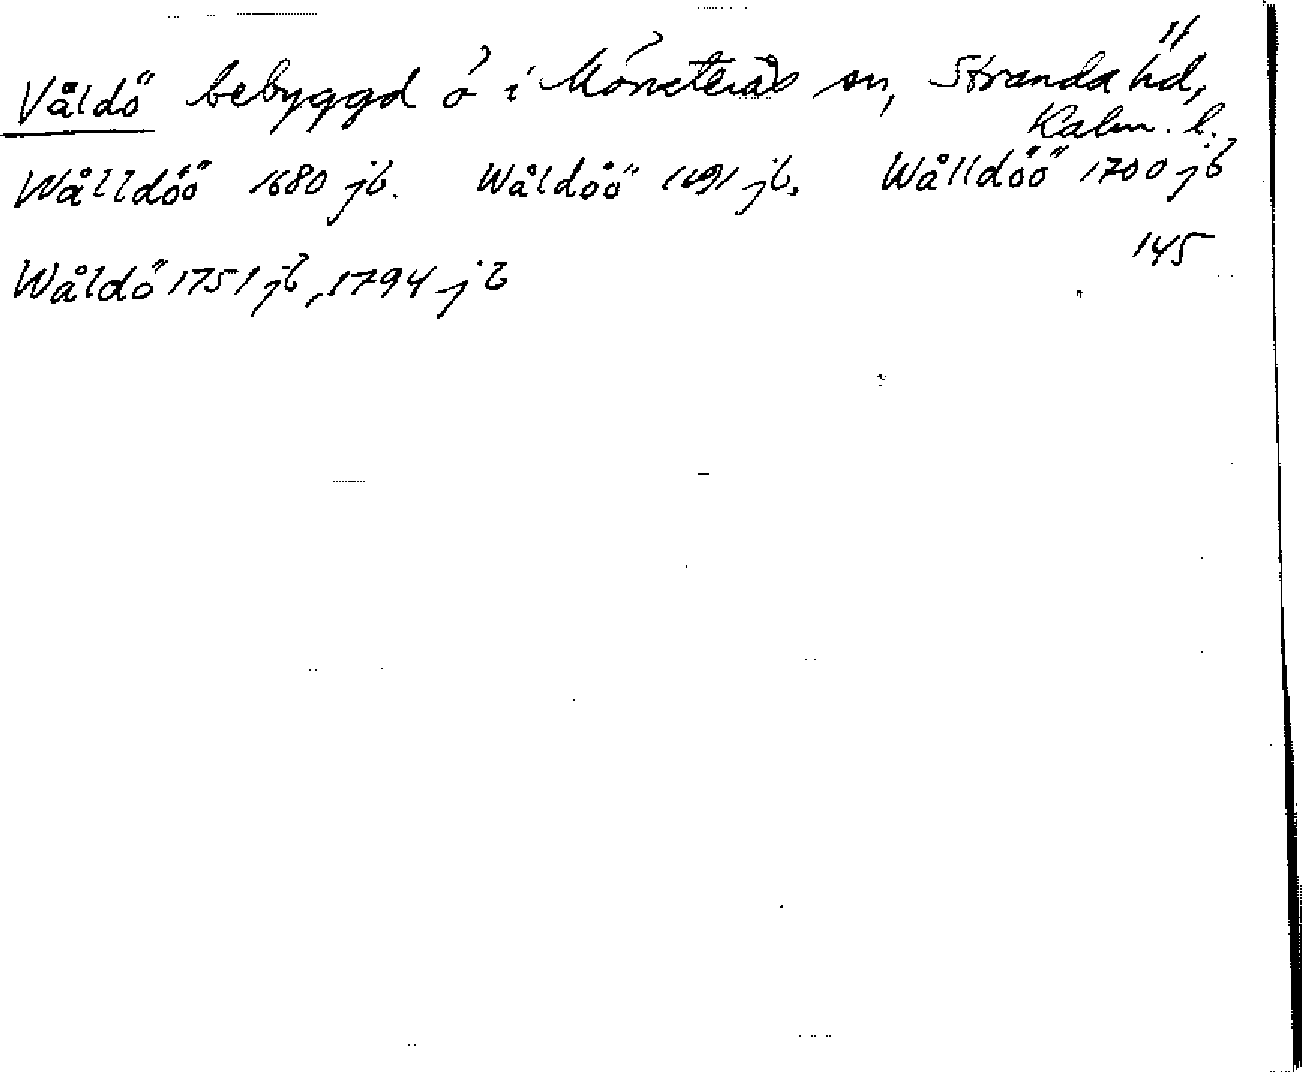 Våldö bebyggd ö i Mönsterås sn, Stranda hd,
Kalm. l.
Wålldöö 1680 jb. Wåldöö 1691 jb, Wålldöö 1700 jb
145
Wåldö 1751 jb, 1794 jb